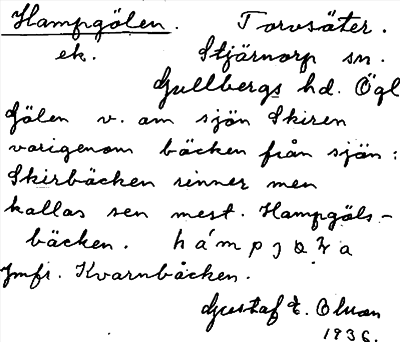 Hampgölen. Torvsäter.
ek. Stjärnorp sn.
Gullbergs hd. Ögl
Gölen v. om sjön Skiren
varigenom bäcken från sjön:
Skirbäcken rinner men
kallas sen mest. Hampgöls-
bäcken.
Jmfr. Kvarnbäcken.
Gustaf E. Olsson
1936.